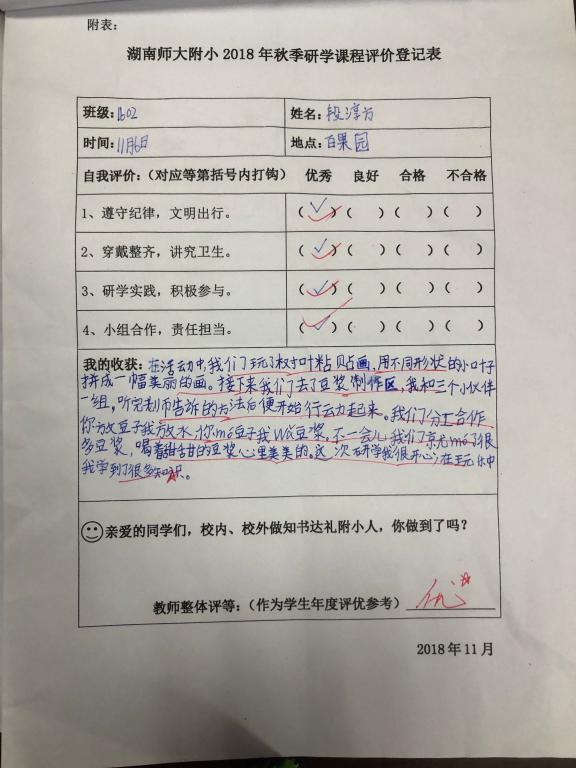 附表：
湖南师大附小 2018 年秋季研学课程评价登记表
班级：1602 姓名：段淳方
时间：11月6日 地点：百果园
自我评价：（对应等第括号内打钩） 优秀 良好 合格 不合格
1、遵守纪律，文明出行。 （√）（ ）（ ）（ ）
2、穿戴整齐，讲究卫生。 （√）（ ）（ ）（ ）
3、研学实践，积极参与。 （√）（ ）（ ）（ ）
4、小组合作，责任担当。 （√）（ ）（ ）（ ）
我的收获：在活动中，我们玩了树叶粘贴画，用不同形状的小叶子
拼成一幅美丽的画。接下来我们去了豆浆制作区，我和三个小伙伴
一组，听完老师告诉的方法后便开始行动起来。我们分工合作
你放豆子我放水，你mó豆子我wā豆浆。不一会儿我们竟允mó了很
多豆浆，喝着甜甜的豆浆心里美美的。这次研学我很开心，在玩乐中
我学到了很多知识。
亲爱的同学们，校内、校外做知书达礼附小人，你做到了吗？
教师整体评等：（作为学生年度评优参考） 优
2018 年 11 月